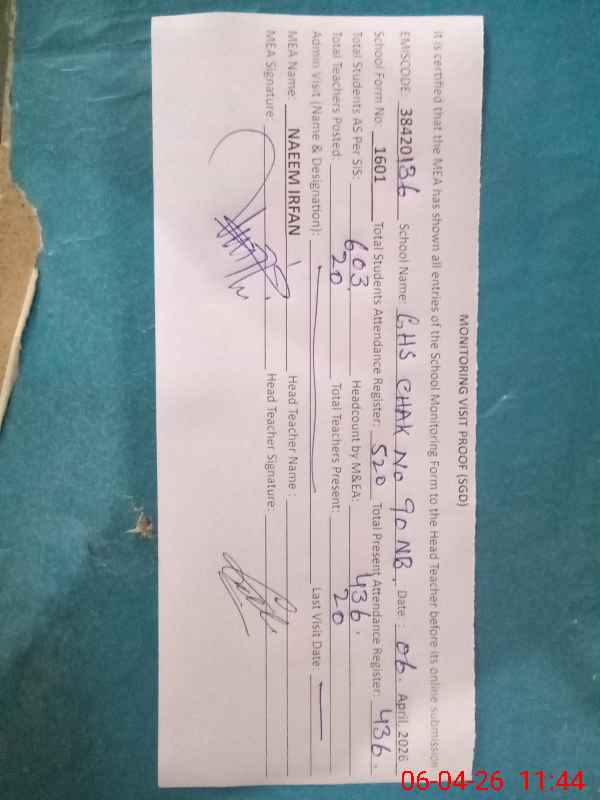 MONITORING VISIT PROOF (SGD)
It is certified that the MEA has shown all entries of the School Monitoring Form to the Head Teacher before its online submission
EMISCODE 38420136 School Name: GHS CHAK No 90 NB. Date : 06. April, 2026
School Form No. 1601 Total Students Attendance Register: 520 Total Present Attendance Register: 436.
Total Students AS Per SIS: 603. Headcount by M&EA: 436.
Total Teachers Posted: 20 Total Teachers Present: 20
Admin Visit (Name & Designation): Last Visit Date:
MEA Name: NAEEM IRFAN Head Teacher Name :
MEA Signature: Head Teacher Signature:
06-04-26 11:44